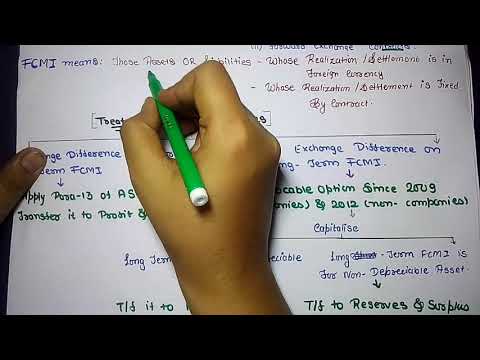 (ii) Forward Exchange Contracts
FCMI means: Those Assets OR Liabilities - Whose Realization/Settlement is in
Foreign Currency
- Whose Realization/Settlement is Fixed
By Contract.
Exchange Difference on
Term FCMI
Exchange Difference on
Long-Term FCMI.
Apply Para-13 of AS
Transfer it to Profit &
Option Since 2009
& 2012 (non-companies)
Capitalise
Long Term
Long-Term FCMI is
For Non-Depreciable Asset.
T/f it to
T/f to Reserves & Surplus